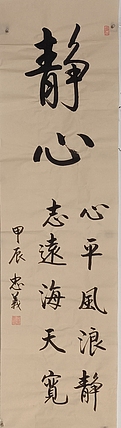 静心
心平風浪静
志遠海天寬
甲辰 忠義